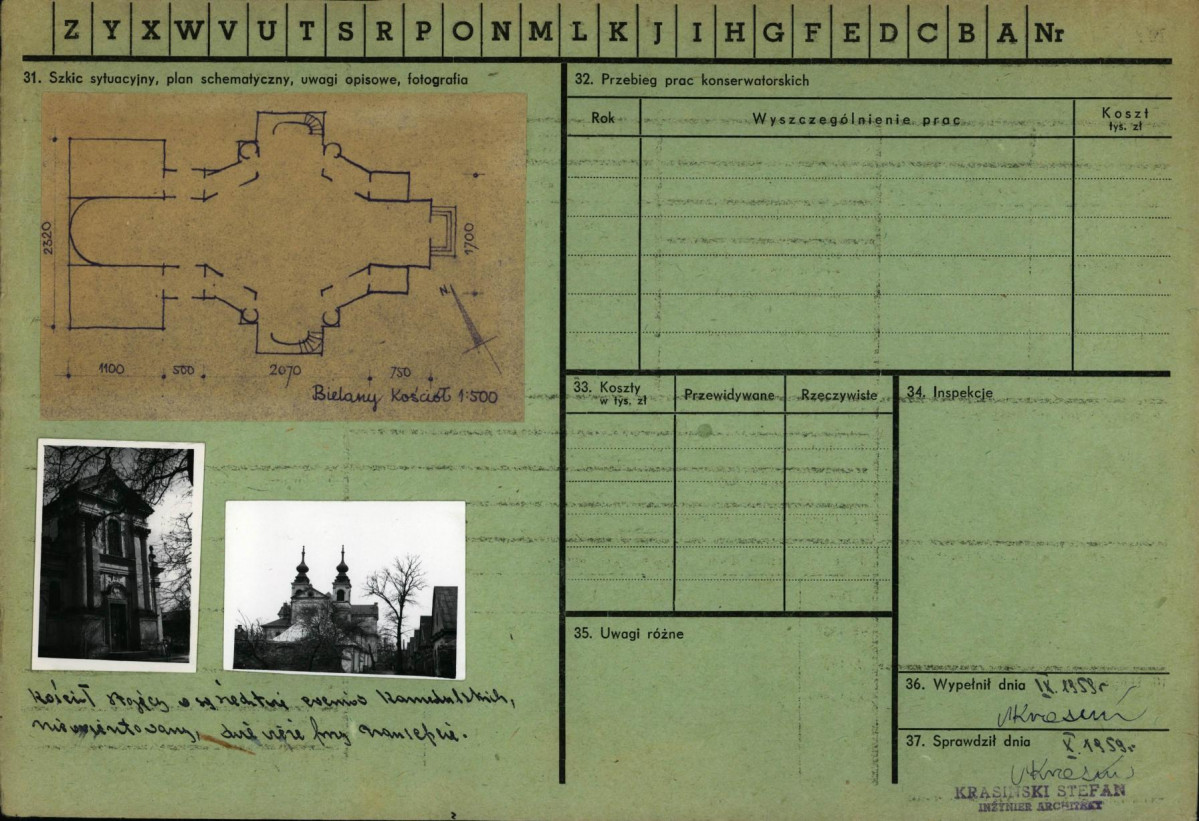 Z Y X W V U T S R P O N M L K J I H G F E D C B A Nr
31. Szkic sytuacyjny, plan schematyczny, uwagi opisowe, fotografia
2320
1700
N
1100 500 2070 750
Bielany Kościół 1:500
Kościół stojący w sąsiedztwie eremów Kamedulskich,
nieorientowany, dwie wieże przy
32. Przebieg prac konserwatorskich
Rok
Wyszczególnienie prac
Koszt
tyś. zł
33. Koszty
w tyś. zł
Przewidywane
Rzeczywiste
34. Inspekcje
35. Uwagi różne
36. Wypełnił dnia IX. 1959r
37. Sprawdził dnia X. 1959r.
KRASIŃSKI STEFAN
INŻYNIER ARCHITEKT